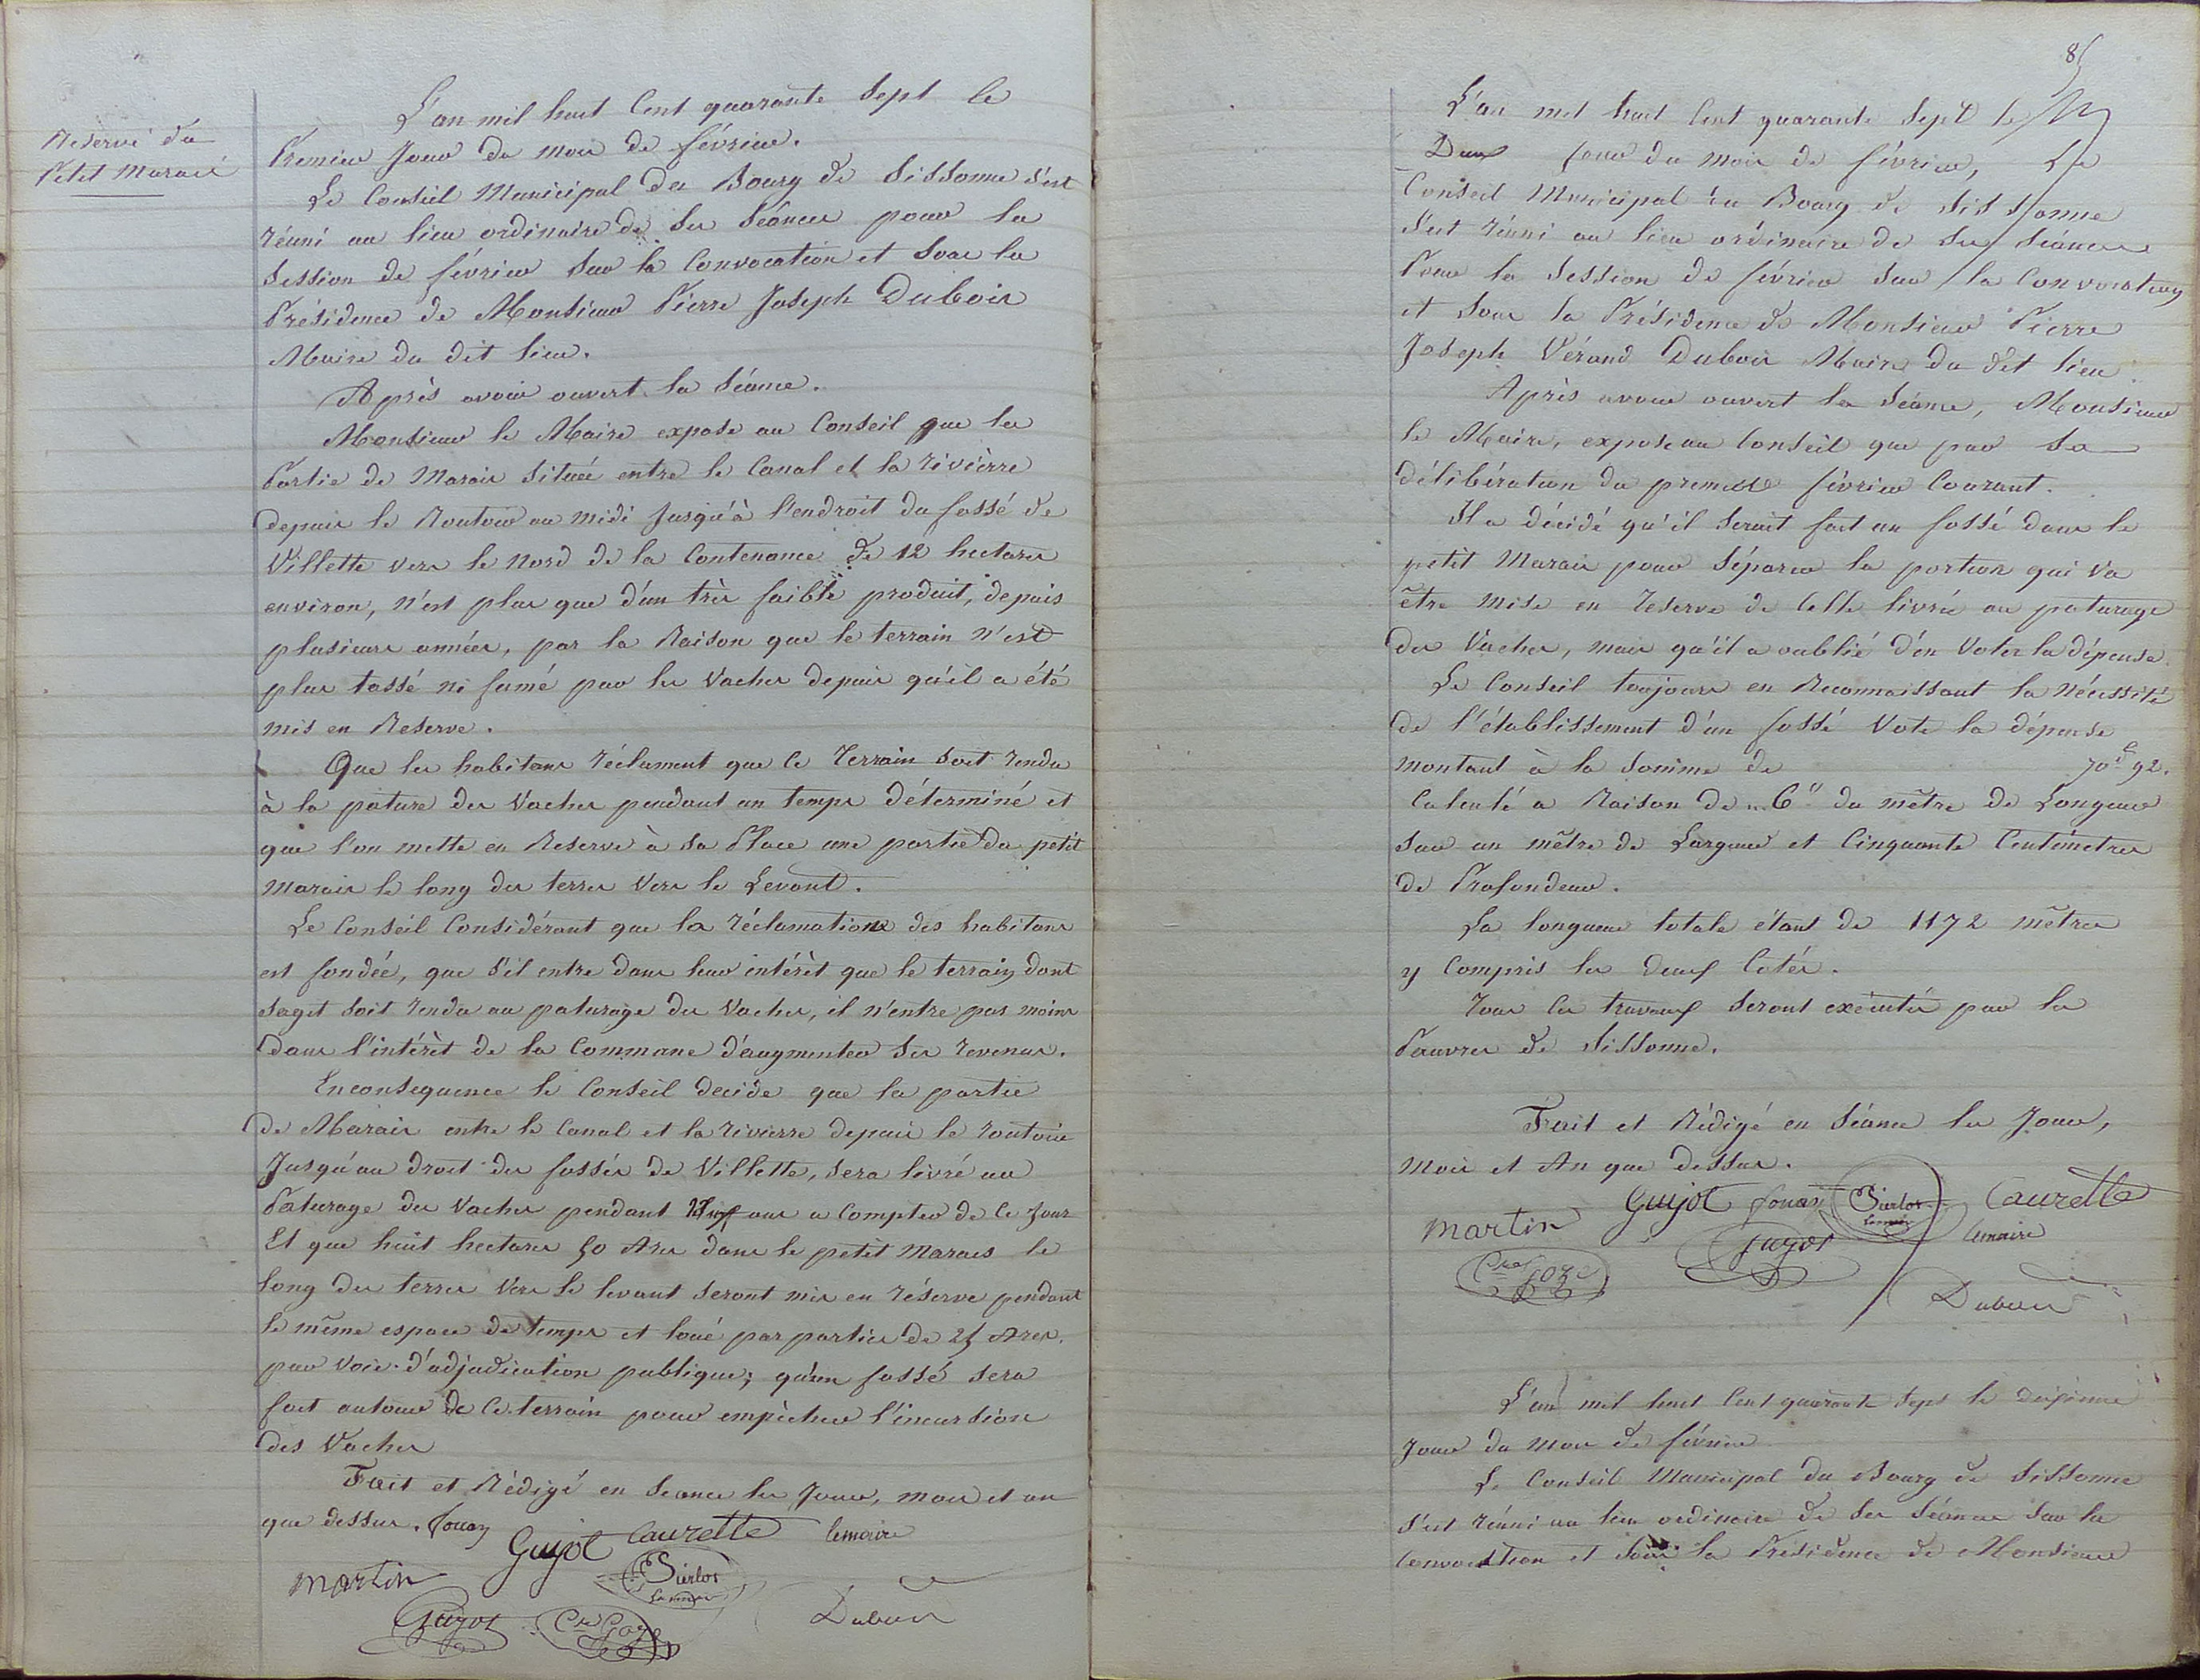 Reserve du
Petit Marais
L'an mil huit Cent quarante Sept le
Premier Jour du mois de février.
Le Conseil Municipal du Bourg de Sissonne s'est
réuni au lieu ordinaire de ses Séances pour la
Session de février sur la Convocation et sous la
Présidence de Monsieur Pierre Joseph Dubois
Maire du dit lieu.
Après avoir ouvert la Séance.
Monsieur le Maire expose au Conseil que la
Partie de Marais située entre le Canal et la rivièrre
depuis le Routoir au midi Jusqu'à l'endroit du fossé de
Villette vers le Nord de la Contenance de 12 hectares
environ, n'est plus que d'un très faible produit, depuis
plusieurs années, par la Raison que le terrain n'est
plus tassé ni fumé par les Vaches depuis qu'il a été
mis en Reserve.
Que les habitans réclament que ce Terrain soit rendu
à la pature des Vaches pendant un temps déterminé et
que l'on mette en Reserve à sa Place une partie du petit
marais le long des terres Vers le Levant.
Le Conseil Considérant que la réclamation des habitans
est fondée, que s'il entre dans leur intérêt que le terrain dont
sagit soit rendu au paturage des Vaches, il n'entre pas moins
Dans l'intérêt de la Commune d'augmenter ses revenus.
Enconsequence le Conseil decide que la partie
de Marais entre le Canal et la rivierre depuis le routoir
Jusqu'au droit des fossés de Villette, sera livré au
Paturage des Vaches pendant ans a Compter de ce Jour
Et que huit hectares 50 Ares dans le petit Marais le
long des terres Vers le levant seront mis en réserve pendant
le même espace de temps et loué par parties de 25 Ares.
par Voie d'adjudication publique; qu'un fossé sera
fait autour de ce terrain pour empêcher l'incursion
des Vaches
Fait et Rédigé en Seance les Jour, mois et an
que dessus. fouan Guyot Caurette lemaire
Martin Sierlot Lemaire
Guyot Cre Goze Dubois
85
L'an mil huit Cent quarante Sept le
Deux Jour du mois de février, Le
Conseil Municipal du Bourg de Sissonne
s'est réuni au lieu ordinaire de ses séances
Pour la Session de février sur la Convocation
et sous la Présidence de Monsieur Pierre
Joseph Vérand Dubois Maire du dit lieu
Après avoir ouvert la Séance, Monsieur
le Maire, expose au Conseil que par Sa
délibération du premier février Courant.
Il a décidé qu'il serait fait un fossé dans le
petit Marais pour Séparer la portion qui Va
être mise en reserve de Celle livrée au paturage
des Vaches, mais qu'il a oublié d'en Voter la dépense.
Le Conseil toujours en Reconnaissant la Nécessité
de l'établissement d'un fossé Vote la dépense
montant à la Somme de 70f 92c.
Calculé a Raison de 6c du mètre de Longueur
sur un mètre de Largeur et Cinquante Centimètres
de Profondeur.
La longueur totale étant de 1172 mètres
y Compris les deux Cotés.
Tous les travaux seront exécutés par les
Pauvres de Sissonne.
Fait et Rédigé en Séance les Jour,
mois et An que dessus.
Martin Guyot fouan Sierlot Lemaire Caurette
Cre Goze Guyot lemaire
Dubois
L'an mil huit Cent quarante Sept le deuxieme
Jour du mois de février
Le Conseil Municipal du Bourg de Sissonne
s'est réuni au lieu ordinaire de ses Séances sur la
Convocation et sous la Présidence de Monsieur